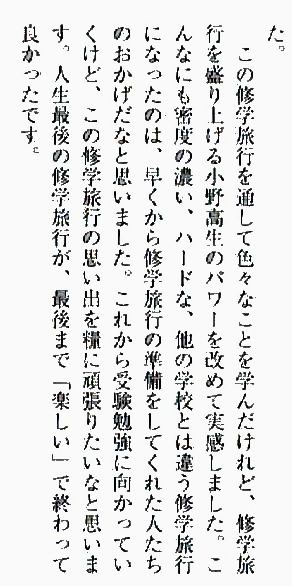 た。
　この修学旅行を通して色々なことを学んだけれど、修学旅
行を盛り上げる小野高生のパワーを改めて実感しました。こ
んなにも密度の濃い、ハードな、他の学校とは違う修学旅行
になったのは、早くから修学旅行の準備をしてくれた人たち
のおかげだなと思いました。これから受験勉強に向かってい
くけど、この修学旅行の思い出を糧に頑張りたいなと思いま
す。人生最後の修学旅行が、最後まで「楽しい」で終わって
良かったです。